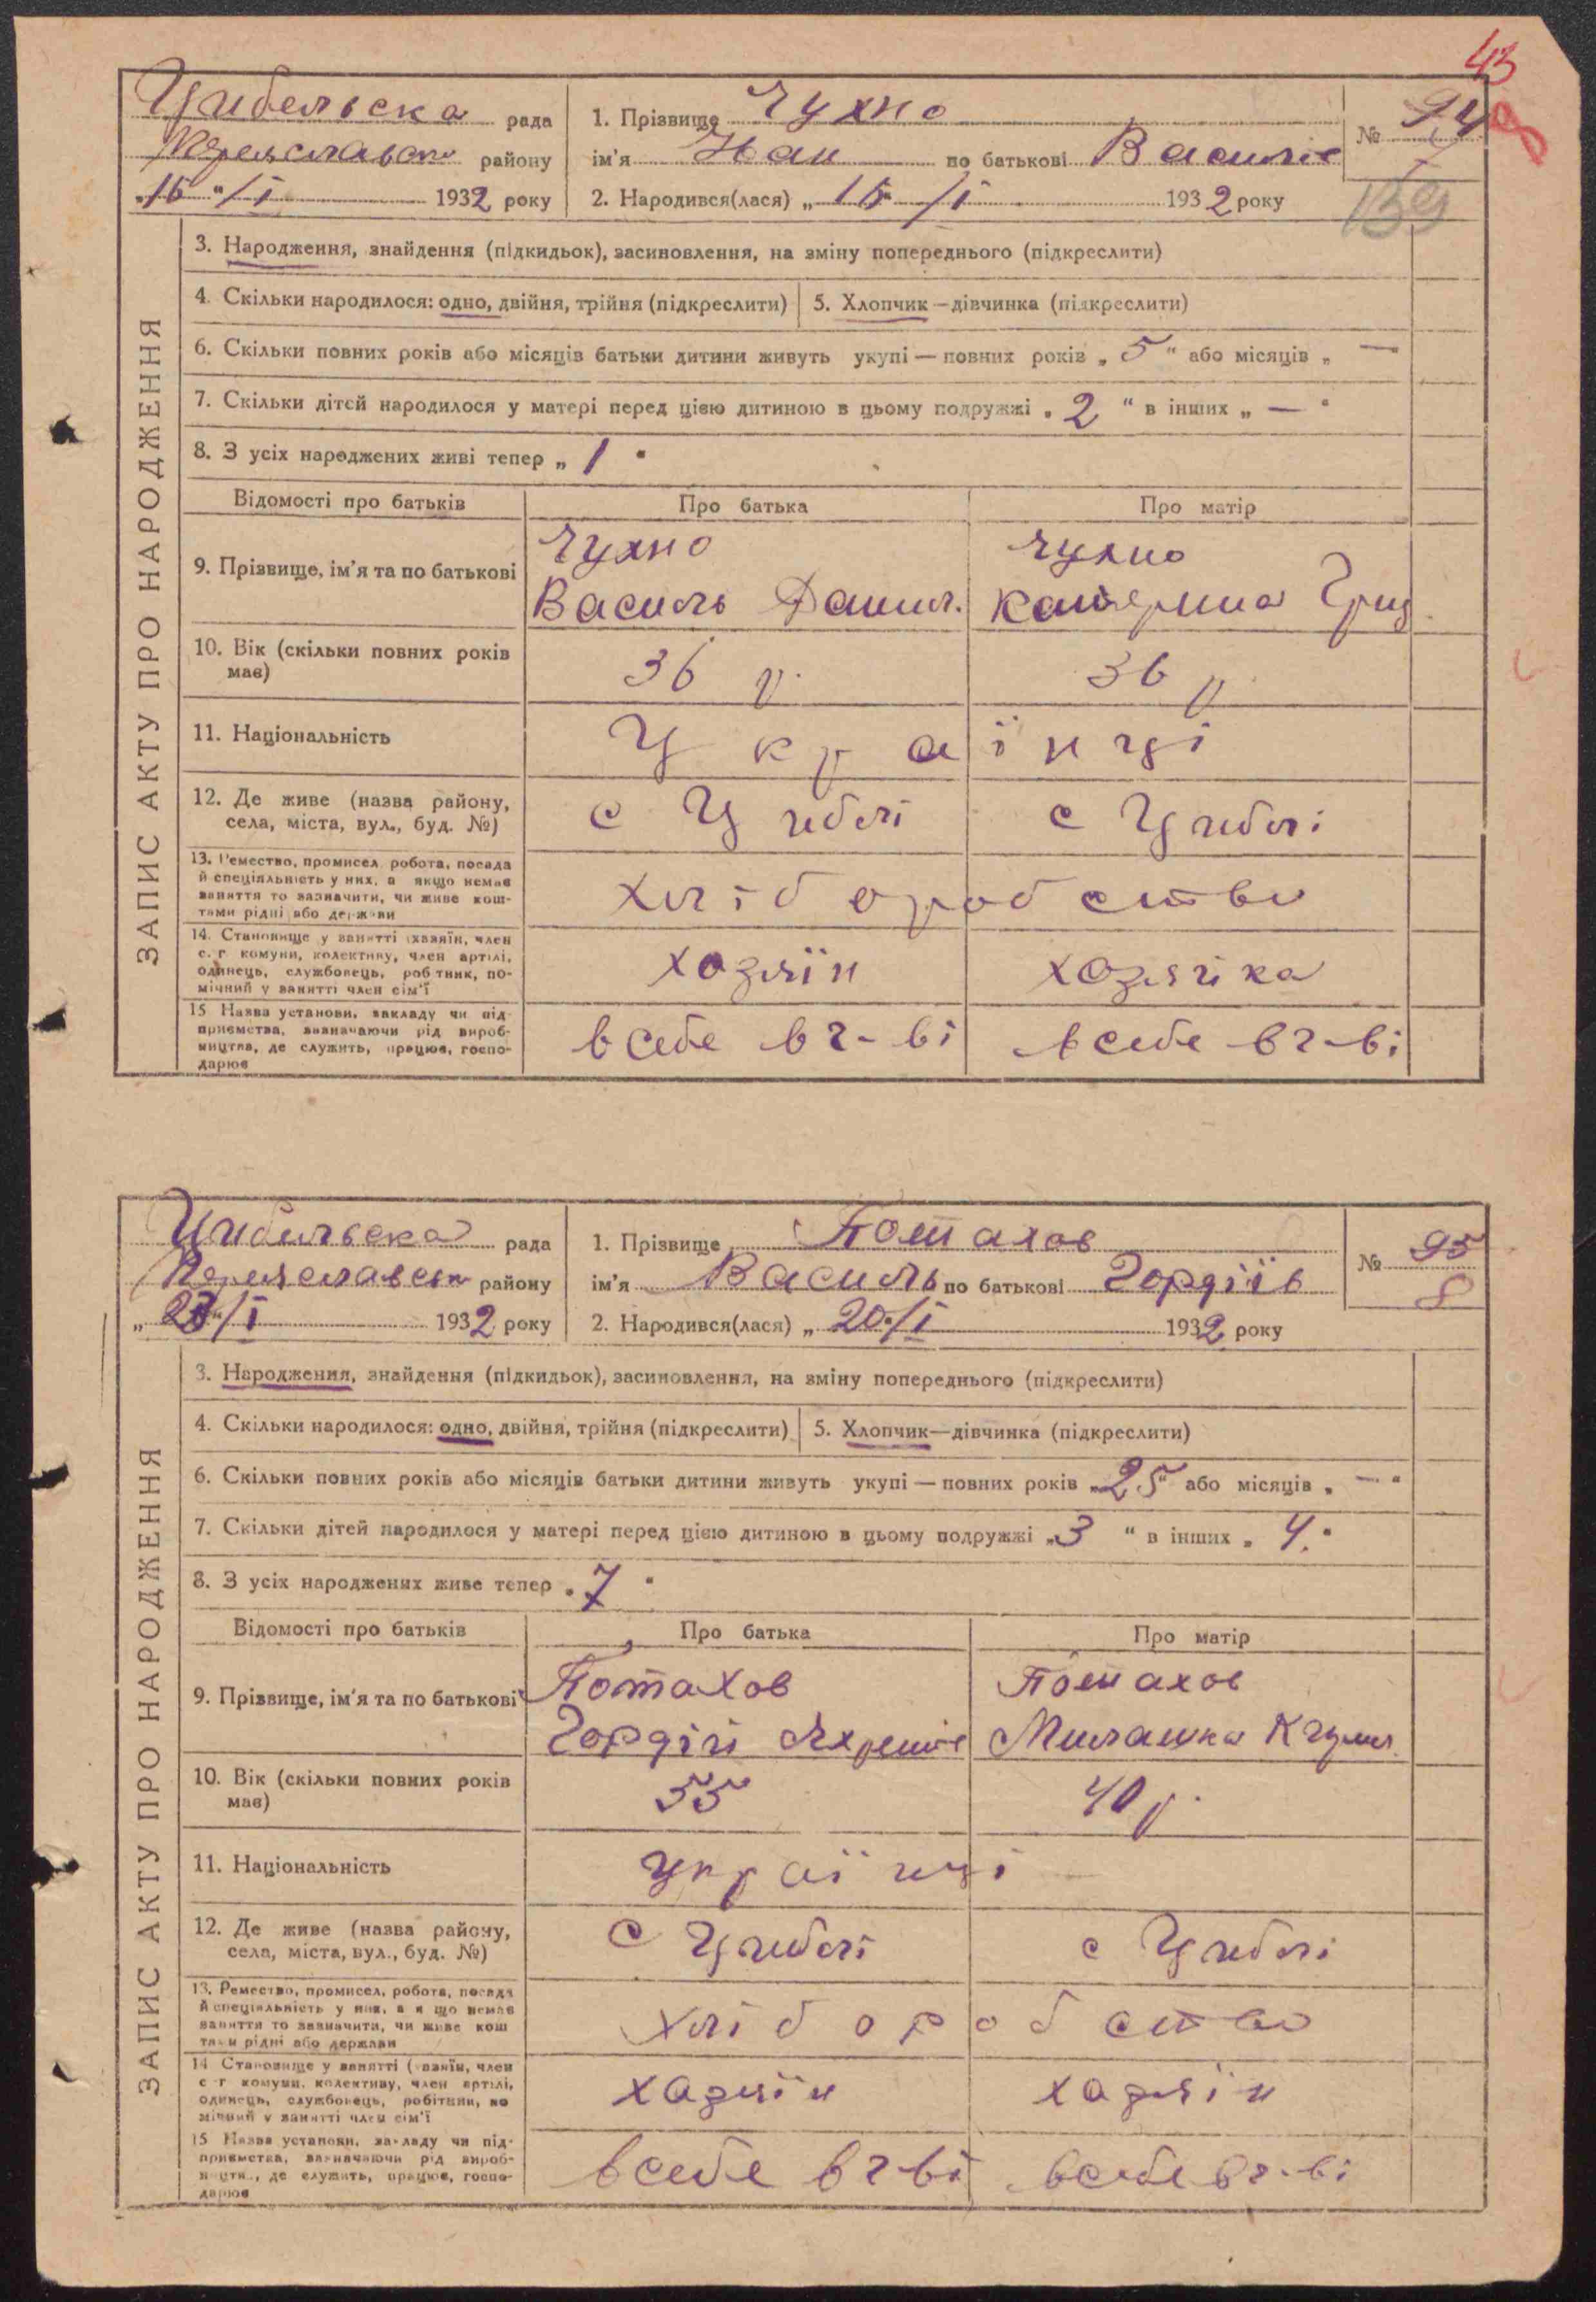 43
Цибельска рада
Переяславськ району
„15“/I 1932 року
1. Прізвище Чухно
ім'я Іван по батькові Василів
2. Народився(лася) „15/I 1932 року
№ 94
7
8
139
ЗАПИС АКТУ ПРО НАРОДЖЕННЯ
3. Народження, знайдення (підкидьок), засиновлення, на зміну попереднього (підкреслити)
4. Скільки народилося: одно, двійня, трійня (підкреслити) 5. Хлопчик—дівчинка (підкреслити)
6. Скільки повних років або місяців батьки дитини живуть укупі — повних років „5“ або місяців „—“
7. Скільки дітей народилося у матері перед цією дитиною в цьому подружжі „2“ в інших „—“
8. З усіх народжених живі тепер „1“
Відомості про батьків Про батька Про матір
9. Прізвище, ім'я та по батькові
Чухно
Василь Данил.
Чухно
Катерина Гриц
10. Вік (скільки повних років
має)
36 р. 36 р
11. Національність Українці
12. Де живе (назва району,
села, міста, вул., буд. №)
с Циблі с Циблі
13. Ремество, промисел, робота, посада
й спеціяльність у них, а якщо немає
заняття то зазначити, чи живе кош-
тами рідні або держави
хліборобство
14. Становище у занятті (хазяїн, член
с. г. комуни, колективу, член артілі,
одинець, службовець, робітник, по-
мічний у занятті член сім'ї
хозяїн хозяїка
15 Назва установи, закладу чи під-
приємства, зазначаючи рід вироб-
ництва, де служить, працює, госпо-
дарює
в себе в г-ві в себе в г-ві
Цибельська рада
Переяславськ району
„23“/I 1932 року
1. Прізвище Потахов
ім'я Василь по батькові Гордіїв
2. Народився(лася) „20“/I 1932 року
№ 95
8
ЗАПИС АКТУ ПРО НАРОДЖЕННЯ
3. Народження, знайдення (підкидьок), засиновлення, на зміну попереднього (підкреслити)
4. Скільки народилося: одно, двійня, трійня (підкреслити) 5. Хлопчик—дівчинка (підкреслити)
6. Скільки повних років або місяців батьки дитини живуть укупі — повних років „25“ або місяців „—“
7. Скільки дітей народилося у матері перед цією дитиною в цьому подружжі „3“ в інших „4.“
8. З усіх народжених живе тепер „7“
Відомості про батьків Про батька Про матір
9. Прізвище, ім'я та по батькові
Потахов
Гордій
Потахов
Милашка
10. Вік (скільки повних років
має)
55 40 р.
11. Національність українці
12. Де живе (назва району,
села, міста, вул., буд. №)
с Циблі с Циблі
13. Ремество, промисел, робота, посада
й спеціяльність у них, а якщо немає
заняття то зазначити, чи живе кош
тами рідні або держави
хліборобство
14 Становище у занятті (хазяїн, член
с-г комуни, колективу, член артілі,
одинець, службовець, робітник, по
мічний у занятті член сім'ї
хазяїн хазяїн
15 Назва установи, закладу чи під-
приємства, зазначаючи рід вироб-
ництва, де служить, працює, госпо-
дарює
в себе в г-ві в себе в г-ві